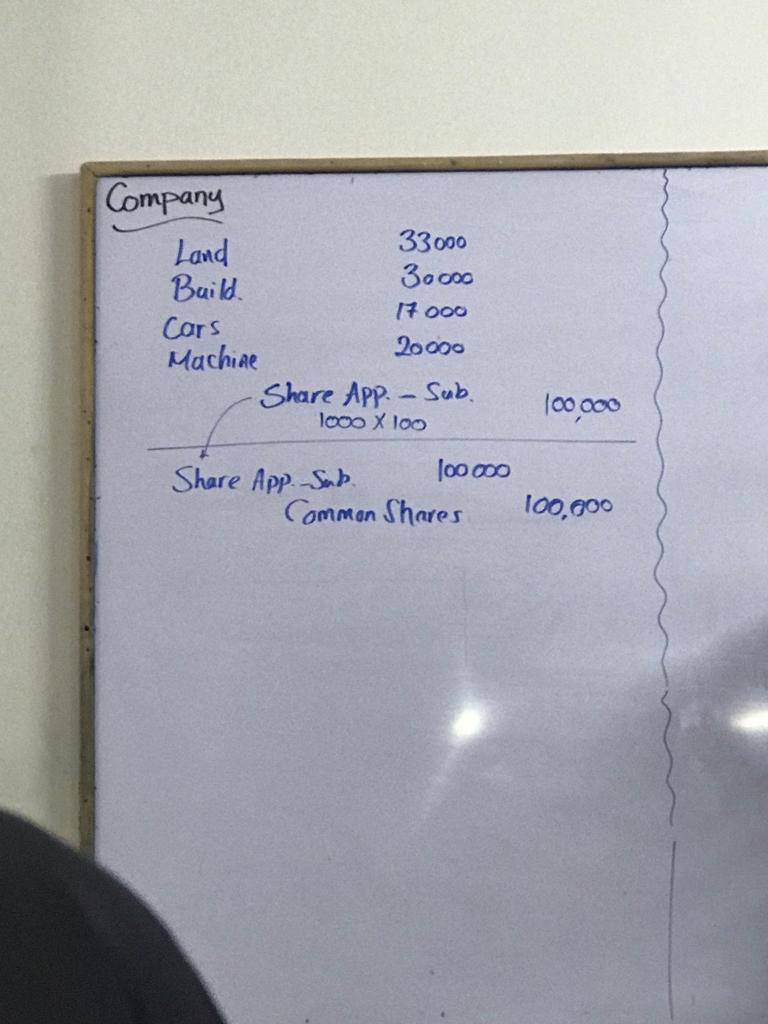 Company
Land 33000
Build. 30000
Cars 17000
Machine 20000
Share App. - Sub. 100,000
1000 X 100
Share App. - Sub. 100000
Common Shares 100,000